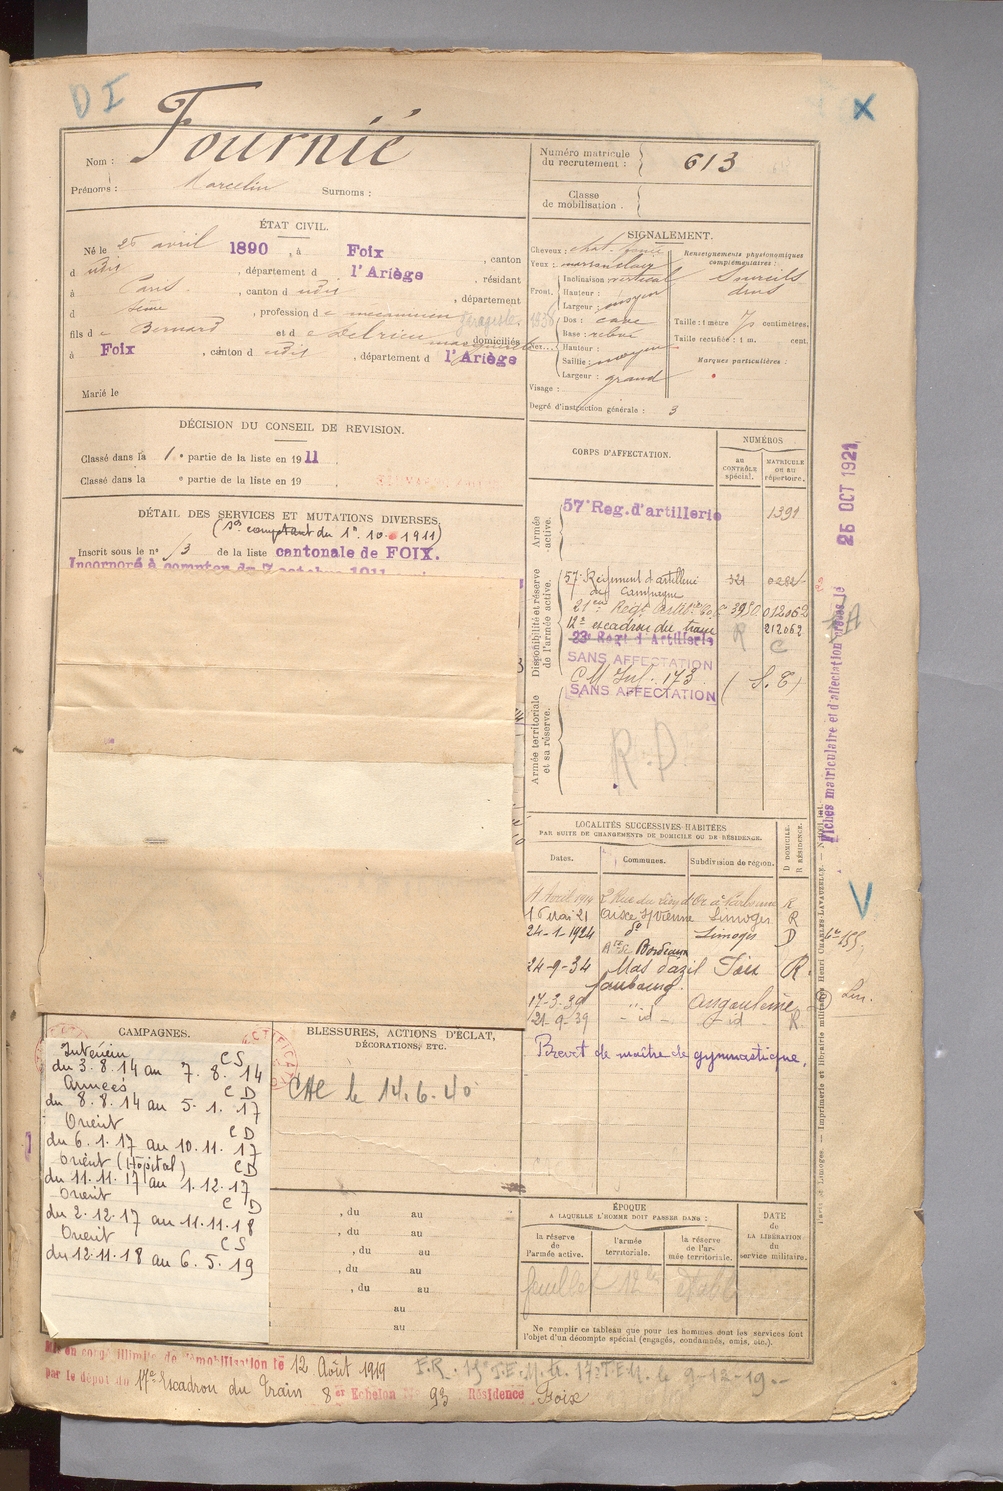 D I
X
Nom : Fournié
Prénoms : Marcelin Surnoms :
Numéro matricule du recrutement : 613
Classe de mobilisation :
ÉTAT CIVIL.
Né le 26 avril 1890, à Foix, canton
d udit, département d l'Ariège, résidant
à Paris, canton d udit, département
d Seine, profession de mécanicien garagiste. 1936
fils de Bernard et de Delrieu domiciliés
à Foix, canton d udit, département d l'Ariège
Marié le
SIGNALEMENT.
Cheveux : chat. foncé
Yeux : marron clair
Front. Inclinaison : vertical
Hauteur :
Largeur : moyen
Nez. Dos : cave
Base : relevé
Hauteur :
Saillie : moyen
Largeur : grand
Visage :
Degré d'instruction générale : 3
Renseignements physionomiques complémentaires :
Sourcils drus
Taille : 1 mètre 70 centimètres.
Taille rectifiée : 1 m. cent.
Marques particulières :
DÉCISION DU CONSEIL DE REVISION.
Classé dans la 1e partie de la liste en 1911
Classé dans la e partie de la liste en 19
DÉTAIL DES SERVICES ET MUTATIONS DIVERSES.
(Sces comptant du 1er.10.1911)
Inscrit sous le n° 13 de la liste cantonale de FOIX.
Incorporé à compter du 7 octobre 1911
CORPS D'AFFECTATION.
NUMÉROS
au contrôle spécial.
matricule ou au répertoire.
Armée active.
57e Reg. d'artillerie 1391
Disponibilité et réserve de l'armée active.
57e Régiment d'artillerie de Campagne 321
21em Regt Artie 3950 012062
12e escadron du train R 212062
23e Regt d'Artillerie C
SANS AFFECTATION
C M Inf. 173 (S. E)
SANS AFFECTATION
Armée territoriale et sa réserve.
R.D
26 OCT 1921
Fiches matriculaire et d'affectation
LOCALITÉS SUCCESSIVES HABITÉES
PAR SUITE DE CHANGEMENTS DE DOMICILE OU DE RÉSIDENCE.
Dates. Communes. Subdivision de région. D DOMICILE. R RÉSIDENCE.
Avril 1914 2 Rue du Lieu d'Or à Carbonne R
16 mai 21 Aixe s/ Vienne Limoges R
24-1-1924 do Limoges D
Bordeaux
24-9-34 Mas d'azil Foix R.
faubourg
17-3-39 " " Angoulême
21-9-39 - id - - id R
Brevet de maître de gymnastique.
V
CAMPAGNES.
Intérieur CS
du 3.8.14 au 7.8.14
Armées CD
du 8.8.14 au 5.1.17
Orient CD
du 6.1.17 au 10.11.17
Orient (Hopital) CD
du 11.11.17 au 1.12.17
Orient CD
du 2.12.17 au 11.11.18
Orient CS
du 12.11.18 au 6.5.19
BLESSURES, ACTIONS D'ÉCLAT,
DÉCORATIONS, ETC.
le 14.6.40
, du au
, du au
, du au
, du au
, du au
au
au
ÉPOQUE
A LAQUELLE L'HOMME DOIT PASSER DANS :
la réserve de l'armée active.
l'armée territoriale.
la réserve de l'armée territoriale.
DATE de LA LIBÉRATION du service militaire.
feuillet établi
Ne remplir ce tableau que pour les hommes dont les services font l'objet d'un décompte spécial (engagés, condamnés, omis, etc.).
Paris et Limoges. — Imprimerie et librairie militaires Henri CHARLES-LAVAUZELLE.
Mis en congé illimité de démobilisation le 12 Août 1919
par le dépôt du 17e Escadron du Train 8er Echelon N° 93 Résidence Foix
F.R. 19e T.E.M. tr. 17e T.E.M. le 9-12-19.-